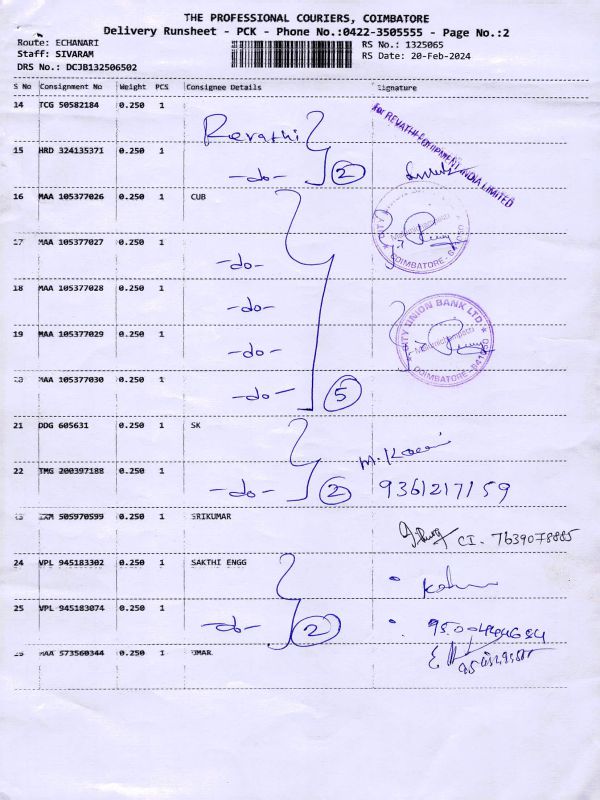 THE PROFESSIONAL COURIERS, COIMBATORE
Delivery Runsheet - PCK - Phone No.:0422-3505555 - Page No.:2
Route: ECHANARI
Staff: SIVARAM
DRS No.: DCJB132506502
RS No.: 1325065
RS Date: 20-Feb-2024
S No Consignment No Weight PCS Consignee Details Signature
14 TCG 50582184 0.250 1 Revathi
for REVATHI EQUIPMENT INDIA LIMITED
15 HRD 324135371 0.250 1 -do- 2
16 MAA 105377026 0.250 1 CUB
COIMBATORE - 641
17 MAA 105377027 0.250 1 -do-
18 MAA 105377028 0.250 1 -do-
CITY UNION BANK LTD
19 MAA 105377029 0.250 1 -do-
COIMBATORE-641050
MAA 105377030 0.250 1 -do- 5
21 DDG 605631 0.250 1 SK
22 TMG 200397188 0.250 1 -do- 2 9361217159
505970599 0.250 1 SRIKUMAR CI. 7639078885
24 VPL 945183302 0.250 1 SAKTHI ENGG
25 VPL 945183074 0.250 1 -do- 2
MAA 573560344 0.250 1 OMAR